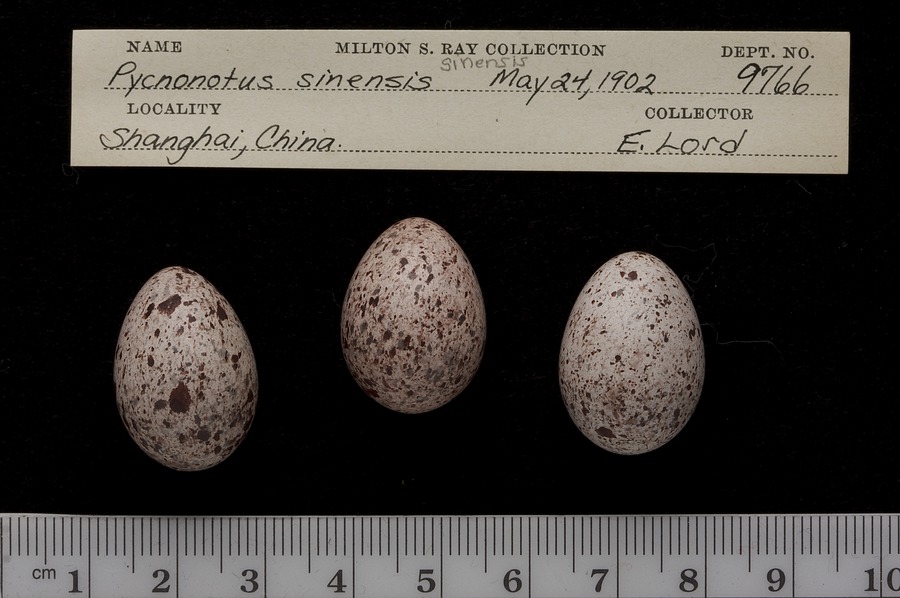 NAME MILTON S. RAY COLLECTION DEPT. NO.
sinensis
Pycnonotus sinensis May 24, 1902 9766
LOCALITY COLLECTOR
Shanghai, China. E. Lord
cm 1 2 3 4 5 6 7 8 9 10